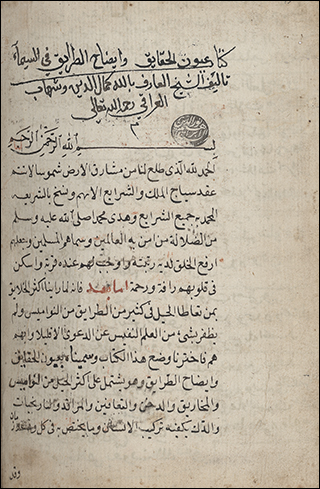 كتاب عيون الحقايق وايضاح الطرايق في السيمياء
تاليف الشيخ العارف بالله كمال الدين وشهاب
العراقي رحمه الله تعالى
بسم الله الرحمن الرحيم
الحمد لله الذى طلع لنا من مشارق الارض شموسا لاستثم
عقد سياج الملك والشرايع الانيه ونسخ بالشريعه
المحمديه جميع الشرايع وهدى محمد صلى الله عليه وسلم
من الضلالة من امن به العالمين وسماهم المسلمين
ارفع الخلق لديه رتبته واوجب لهم عنده قربة واسكن
فى قلوبهم رافة ورحمة اما بعد فانه لما راينا اكثر الخلايق
ممن تعاطا الحيل فى كثير من الطرايق من النواميس ولم
يظفر بشئ من العلم النفيس عن الدعوى الا قليلا وابهم
هم فاخترنا وضع هذا الكتاب وسميناه بعيون الحقايق
وايضاح الطرايق وهو يشتمل على اكثر الحيل من النواميس
والمخاريق والدخن والتعافين والمراقد والنارنجيات
والدك وكيفية تركيب الانسان وما يختص به فى كل